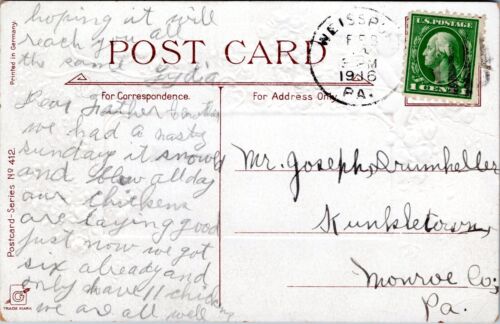 hoping it will
reach you all
the same
Lydia
POST CARD
WEISSP
FEB
PM
1916
PA.
U.S. POSTAGE
1 CENT 1
Printed in Germany.
For Correspondence.
For Address Only.
Dear Father & mother
we had a nasty
sunday it snowed
and blew all day
our chickens
are laying good
just now we got
six already and
only have 11 chicks
we are all well
Mr. Joseph Drumheller
Kunkletown,
Monroe Co;
Pa.
Postcard-Series No 412.
TRADE MARK